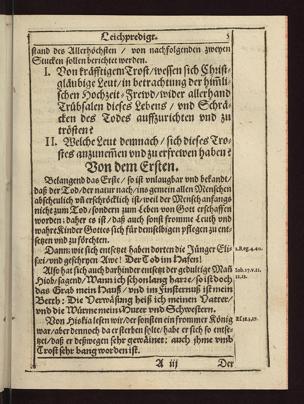 Leichpredigt. 5
stand des Allerhöchsten / von nachfolgenden zweyen
Stucken sollen berichtet werden.
I. Von kräfftigem Trost / wessen sich Christ-
gläubige Leut / in betrachtung der himli-
schen Hochzeit-Frewd / wider allerhand
Trübsalen dieses Lebens / vnd Schrä-
cken des Todes auffzurichten vnd zu
trösten?
II. Welche Leut demnach / sich dieses Tro-
stes anzunemen vnd zu erfrewen haben?
Von dem Ersten.
Belangend das Erste / so ist vnlaugbar vnd bekandt /
daß der Tod / der natur nach / ins gemein allen Menschen
abscheulich vñ erschröcklich ist / weil der Mensch anfangs
nicht zum Tod / sondern zum Leben von Gott erschaffen
worden: daher es ist / daß auch sonst fromme Leuth vnd
wahre Kinder Gottes sich für demselbigen pflegen zu ent-
setzen vnd zu förchten.
Dann wie sich entsetzet haben dorten die Jünger Eli-
sei / vnd geschryen Awe! Der Tod im Hafen! 2.Reg.4.40.
Also hat sich auch darhinder entsetzt der gedultige Mañ
Hiob / sagend / Wann ich schon lang harre / so ist doch
das Grab mein Hauß / vnd im Finsternuß ist mein
Beth: Die Verwäsung heiß ich meinen Vatter /
vnd die Würme mein Muter vnd Schwestern.
Von Hiskia lesen wir / der sonsten ein frommer König
war / aber dennoch da er sterben solte / habe er sich so entse-
tzet / daß er deßwegen sehr geweinet: auch ihme vmb
Trost sehr bang worden ist.
A iij Der